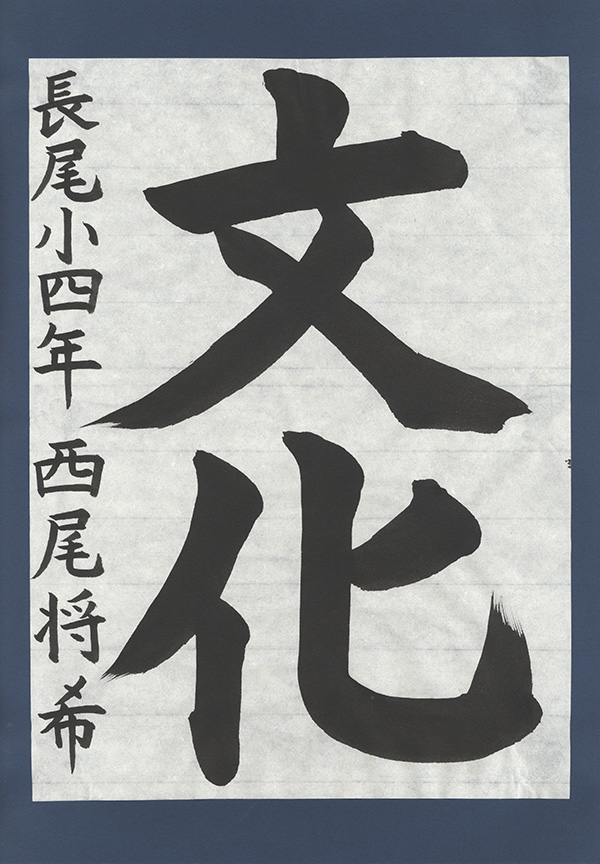 文化
長尾小四年 西尾将希